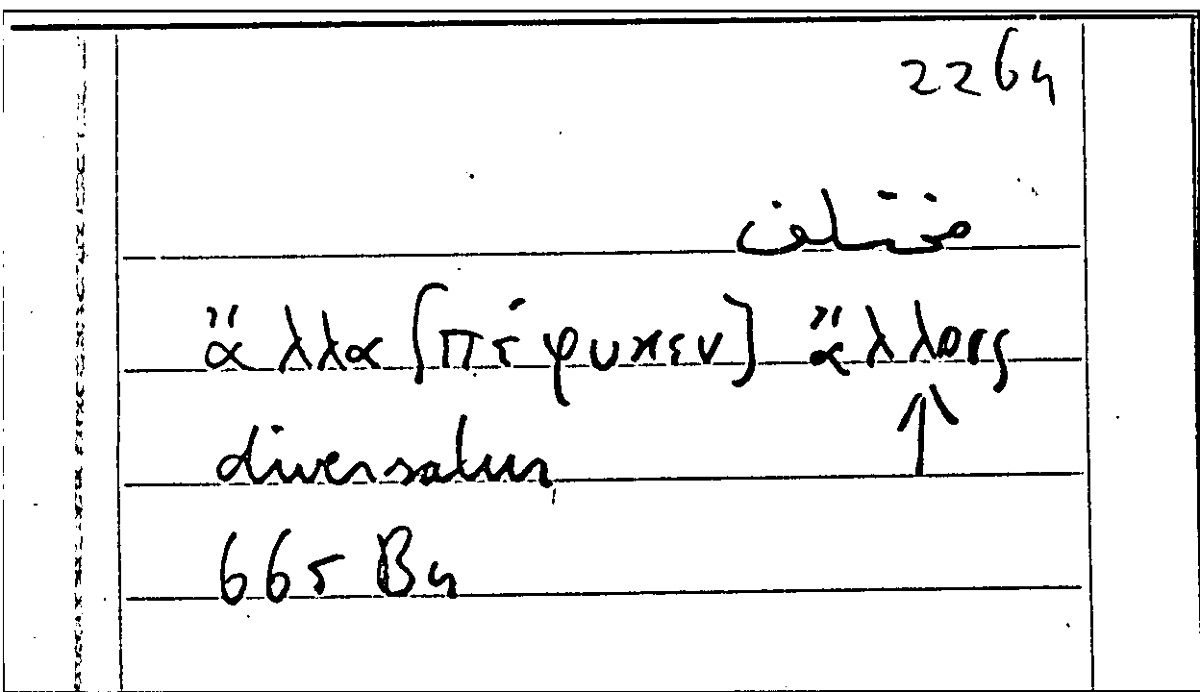 2264
مختلف
ἄλλα [πέφυκεν] ἄλλοις
↑
diversatur
665 B4